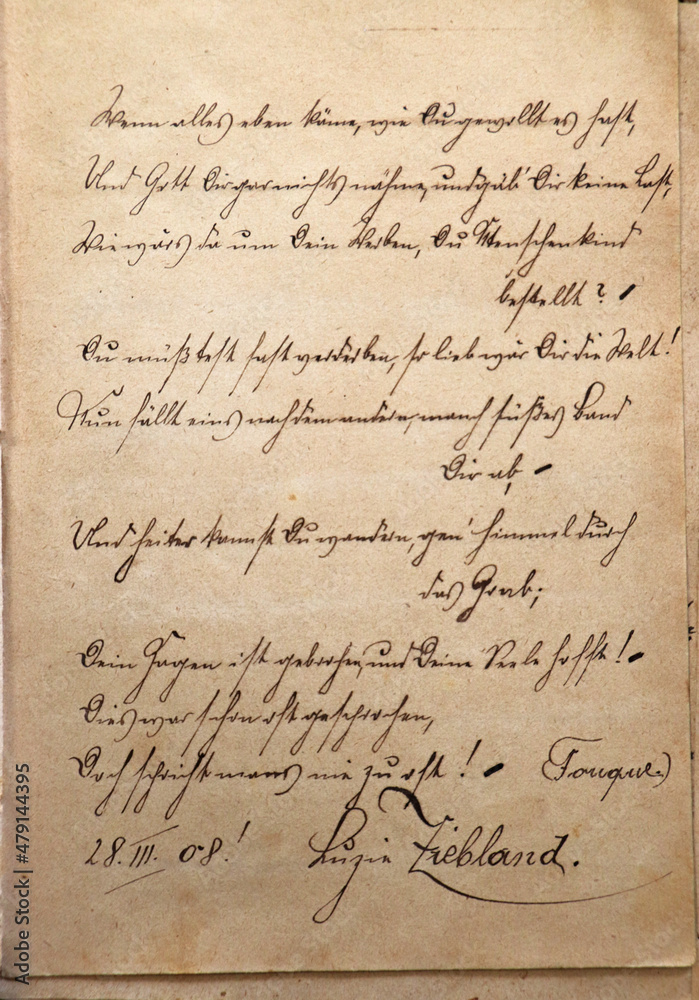 Wenn alles eben käme, wie Du gewollt es hast,
Und Gott Dir gar nichts nähme, und gäb' Dir keine Last,
Wie wärs da um Dein Sterben, Du Menschenkind
bestellt? -
Du müßtest fast verderben, so lieb wär Dir die Welt!
Nun fällt eins nach dem andern, manch süßes Band
Dir ab, -
Und heiter kannst Du wandern, gen' Himmel durch
das Grab;
Dein Zagen ist gebrochen, und Deine Seele hofft! -
Dies war schon oft gesprochen,
Doch spricht mans nie zu oft! - (Fouqué.)
28. III. 08.! Luzie Ziebland.
Adobe Stock | #479144395